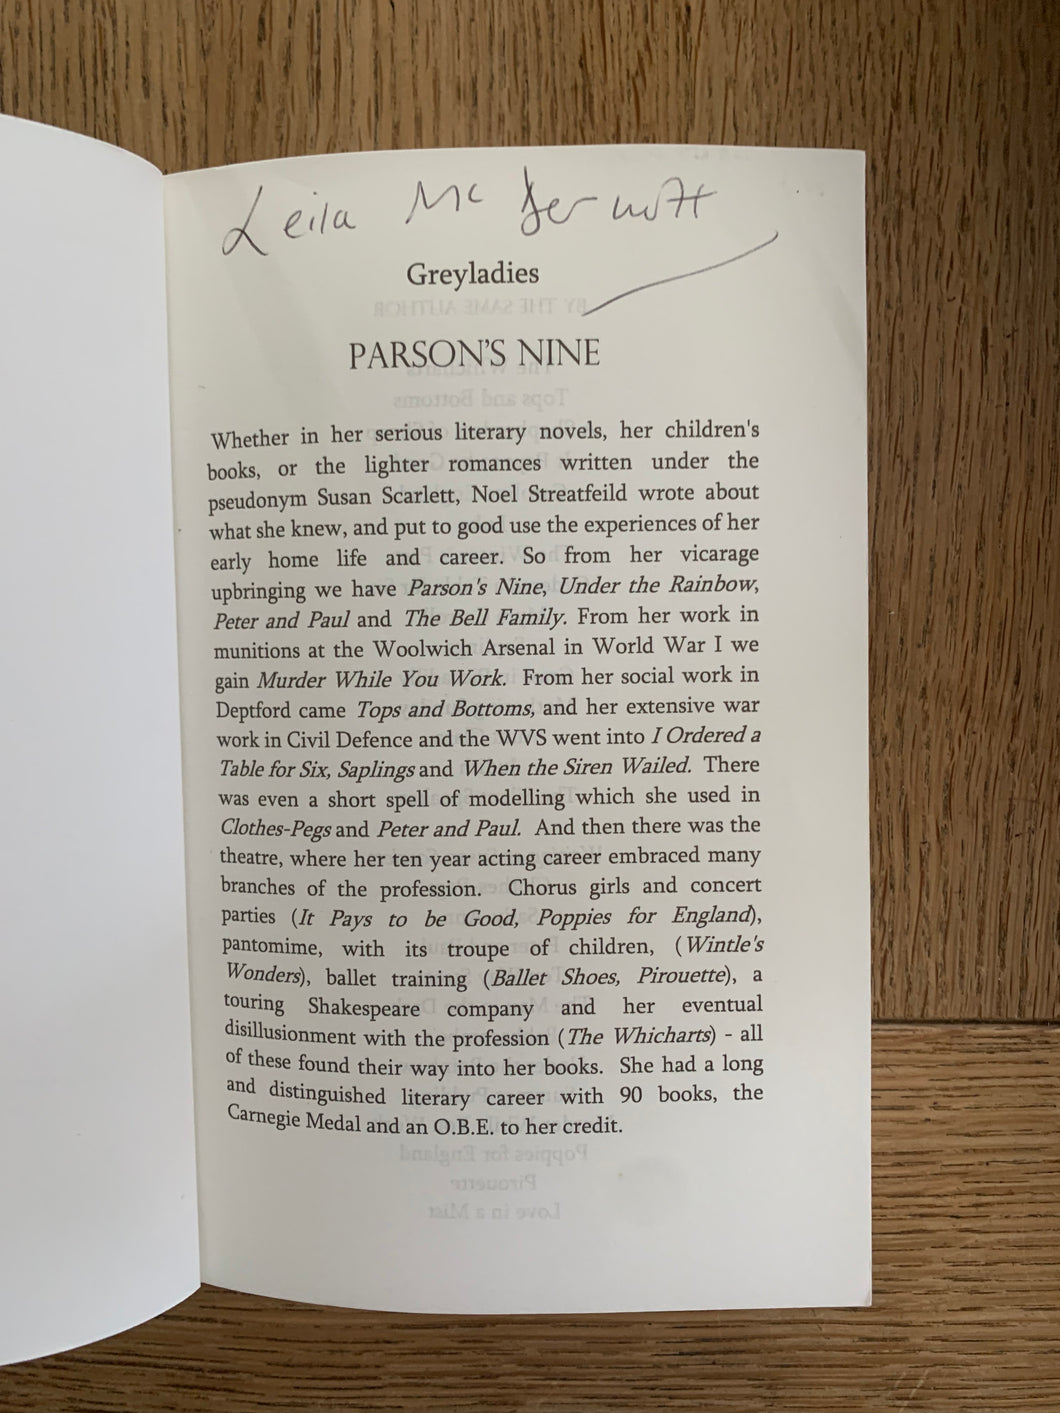 Leila McDermott
Greyladies
PARSON'S NINE
Whether in her serious literary novels, her children's
books, or the lighter romances written under the
pseudonym Susan Scarlett, Noel Streatfeild wrote about
what she knew, and put to good use the experiences of her
early home life and career. So from her vicarage
upbringing we have Parson's Nine, Under the Rainbow,
Peter and Paul and The Bell Family. From her work in
munitions at the Woolwich Arsenal in World War I we
gain Murder While You Work. From her social work in
Deptford came Tops and Bottoms, and her extensive war
work in Civil Defence and the WVS went into I Ordered a
Table for Six, Saplings and When the Siren Wailed. There
was even a short spell of modelling which she used in
Clothes-Pegs and Peter and Paul. And then there was the
theatre, where her ten year acting career embraced many
branches of the profession. Chorus girls and concert
parties (It Pays to be Good, Poppies for England),
pantomime, with its troupe of children, (Wintle's
Wonders), ballet training (Ballet Shoes, Pirouette), a
touring Shakespeare company and her eventual
disillusionment with the profession (The Whicharts) - all
of these found their way into her books. She had a long
and distinguished literary career with 90 books, the
Carnegie Medal and an O.B.E. to her credit.